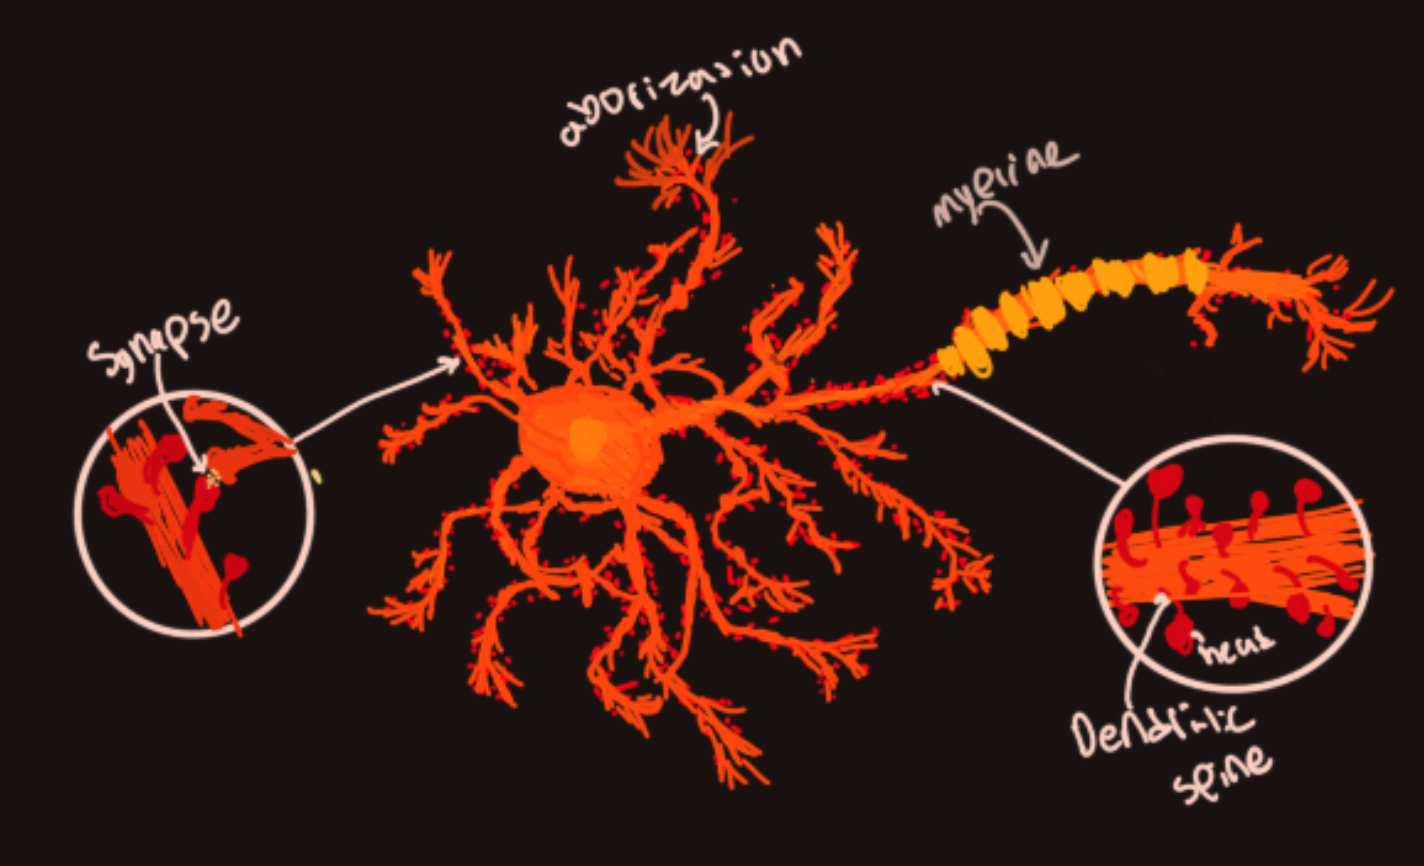 aborization
myeline
synapse
head
Dendritic
spine